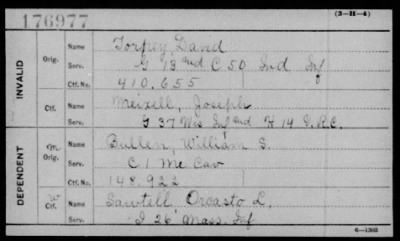 176977
(3-11-4)
INVALID
Orig.
Name Torpey David
Serv. G 18 and C 50 Ind Inf
Ctf. No. 410,655
Ctf.
Name Meixell, Joseph
Serv. G 37 Wis Inf and H 14 V.R.C.
DEPENDENT
m Orig.
Name Bullen, William S.
Serv. C 1 Me Cav
Ctf. No. 148,922
W Ctf.
Name Sawtell Orcasto L.
Serv. I 26 Mass. Inf